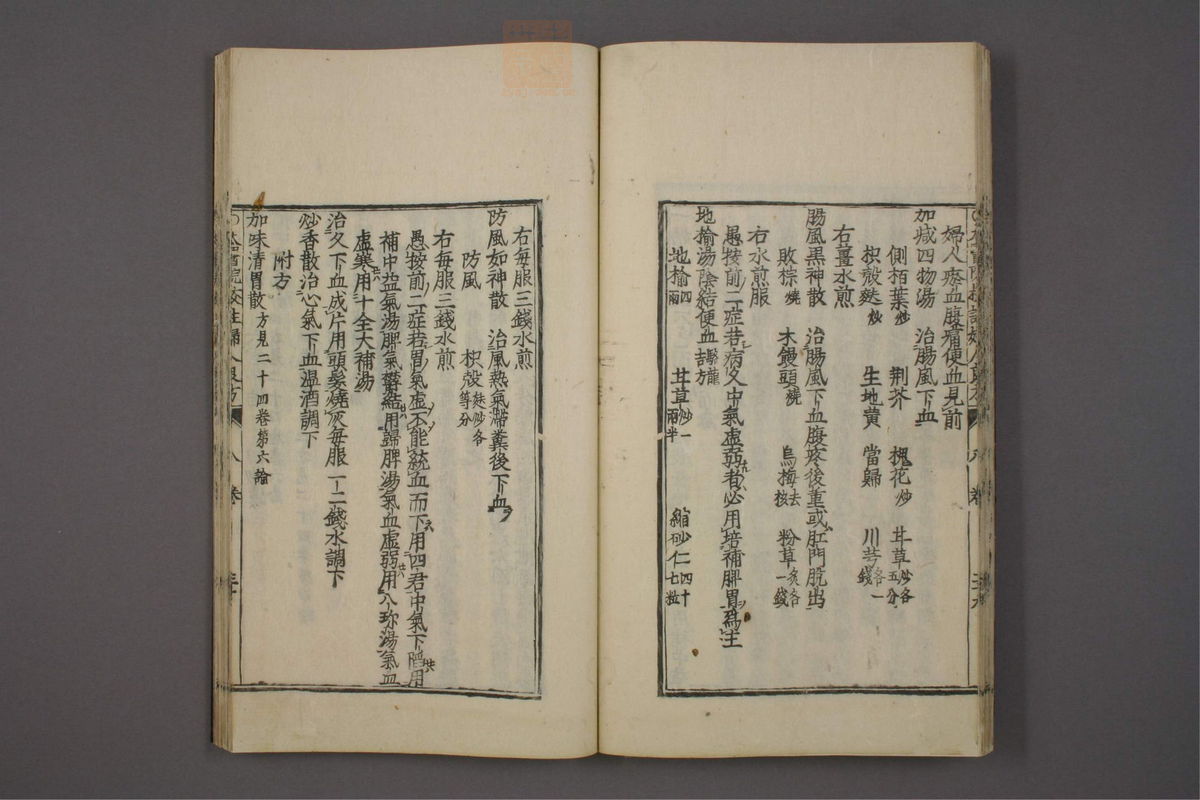 婦人瘀血腹痛便血見前
加减四物湯　治腸風下血
側栢葉炒　荆芥　槐花炒　甘草炒各五分
枳殼麩炒　生地黄　當歸　川芎各一錢
右薑水煎
腸風黒神散　治腸風下血腹疼後重或肛門脫出
敗棕燒　木饅頭燒　烏梅去核　粉草炙各一錢
右水煎服
愚按前二症若病久中氣虚弱者必用培補脾胃爲主
地榆湯陰結便血
地榆四兩　甘草炒一兩半　縮砂仁四十七粒
右每服三錢水煎
防風如神散　治風熱氣滯糞後下血
防風　枳殼麸炒各等分
右每服三錢水煎
愚按前二症若胃氣虚不能統血而下用四君中氣下陷用
補中益氣湯脾氣欝結用歸脾湯氣血虚弱用八珍湯氣血
虚寒用十全大補湯
治久下血成片用頭髮燒灰每服一二錢水調下
炒香散治心氣下血温酒調下
附方
加味清胃散方見二十四卷第六論
婦人良方　八卷